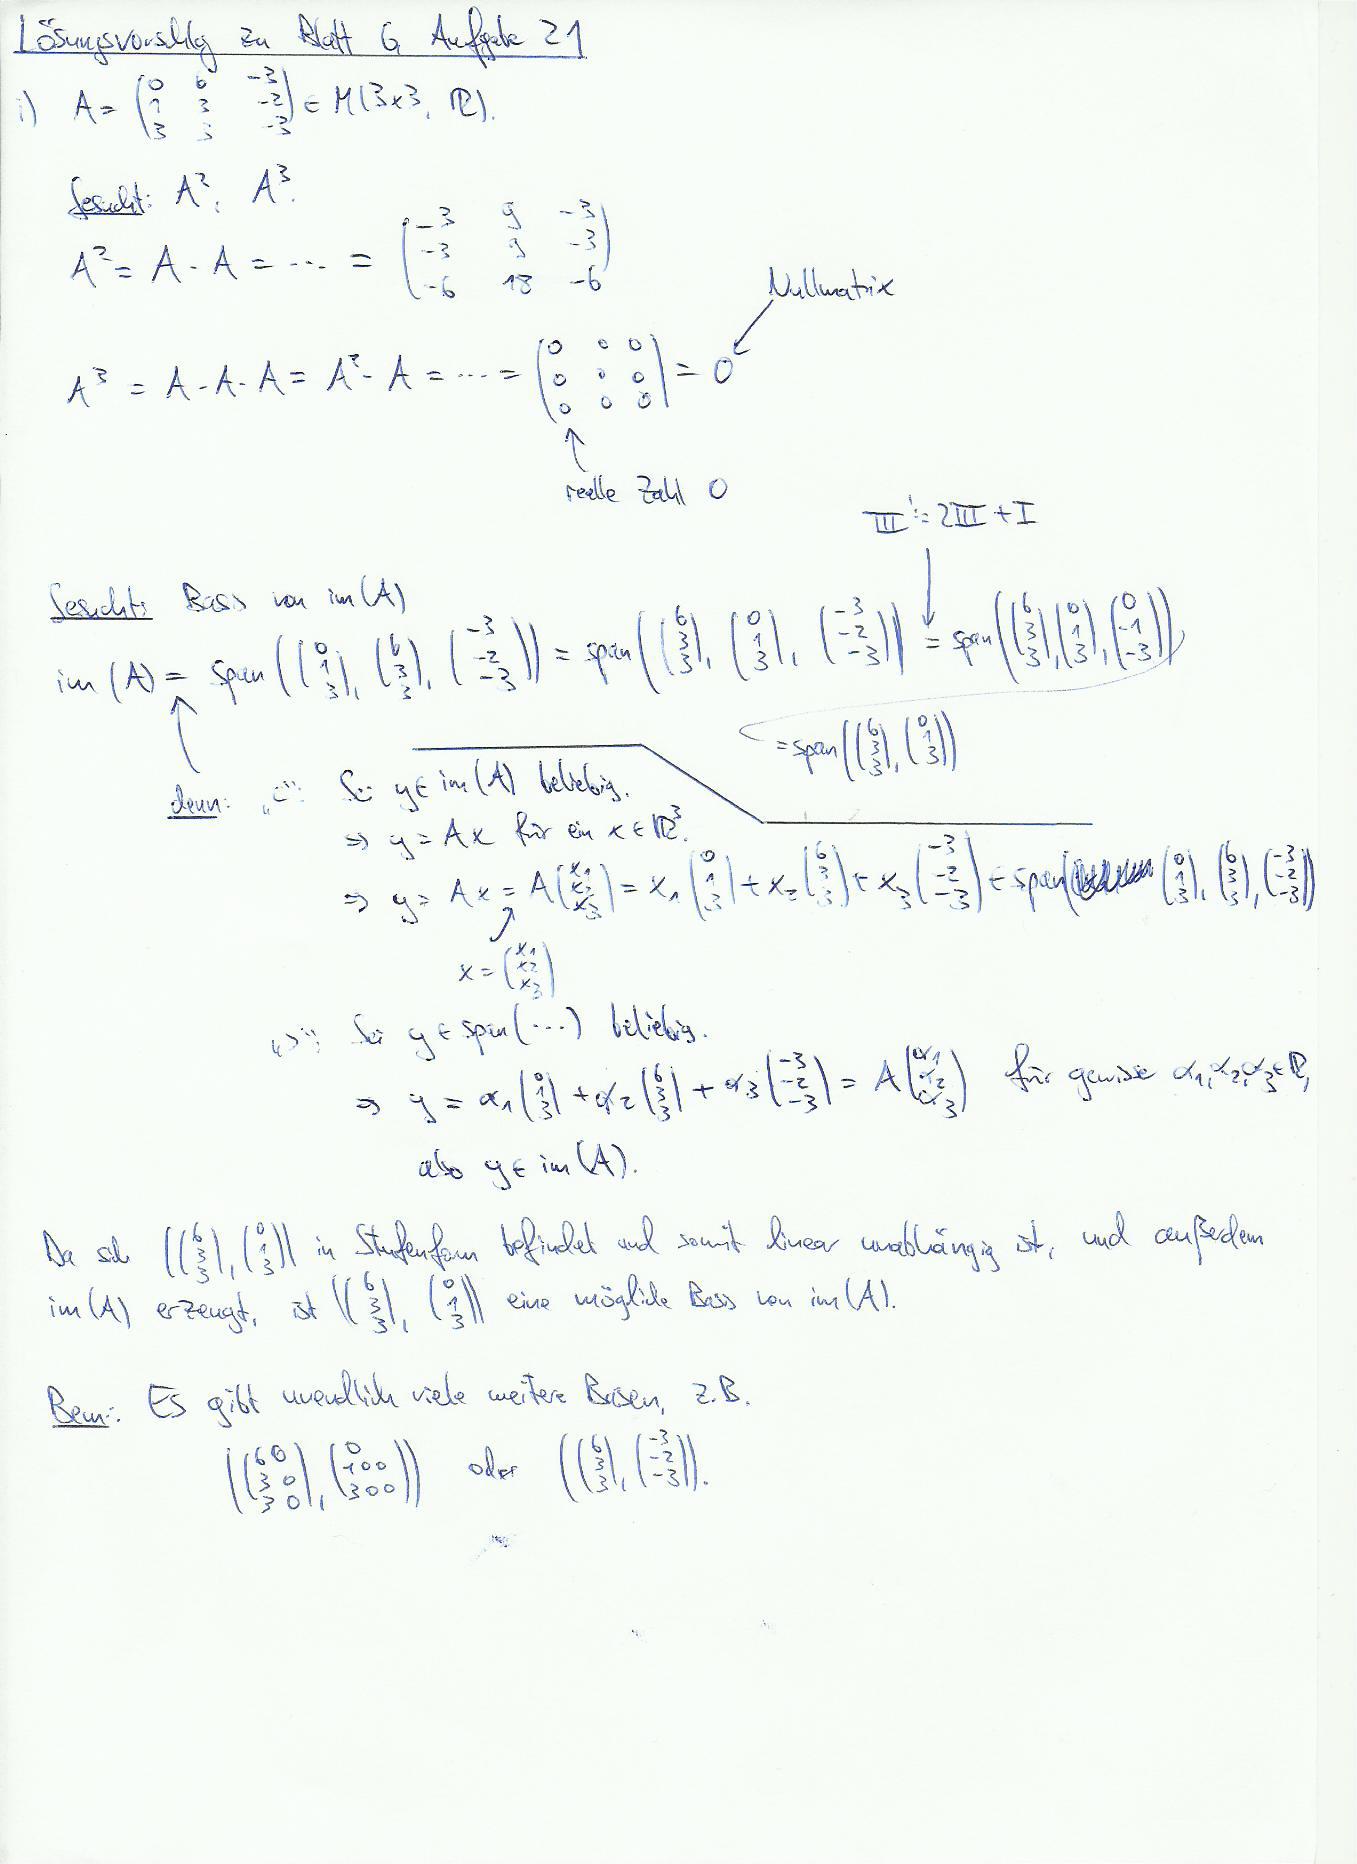 Lösungsvorschlg zu Blatt 6 Aufgabe 21
i) A = (0 6 -3; 1 3 -2; 3 3 -3) ∈ M(3×3, ℝ).
Gesucht: A², A³.
A² = A · A = ... = (-3 9 -3; -3 9 -3; -6 18 -6)
Nullmatrix
A³ = A · A · A = A² · A = ... = (0 0 0; 0 0 0; 0 0 0) = 0
reelle Zahl 0
III' := 2III + I
Gesucht: Basis von im(A)
im(A) = span((0 1 3), (6 3 3), (-3 -2 -3)) = span((6 3 3), (0 1 3), (-3 -2 -3)) = span((6 3 3), (0 1 3), (0 -1 -3))
= span((6 3 3), (0 1 3))
denn: „⊂": Sei y ∈ im(A) beliebig.
⇒ y = Ax für ein x ∈ ℝ³.
⇒ y = Ax = A(x1 x2 x3) = x1(0 1 3) + x2(6 3 3) + x3(-3 -2 -3) ∈ span((0 1 3), (6 3 3), (-3 -2 -3))
x = (x1 x2 x3)
„⊃": Sei y ∈ span(...) beliebig.
⇒ y = α1(0 1 3) + α2(6 3 3) + α3(-3 -2 -3) = A(α1 α2 α3) für gewisse α1, α2, α3 ∈ ℝ,
also y ∈ im(A).
Da sich ((6 3 3), (0 1 3)) in Stufenform befindet und somit linear unabhängig ist, und außerdem
im(A) erzeugt, ist ((6 3 3), (0 1 3)) eine mögliche Basis von im(A).
Bem.: Es gibt unendlich viele weitere Basen, z.B.
((60 30 30), (0 100 300)) oder ((6 3 3), (-3 -2 -3)).